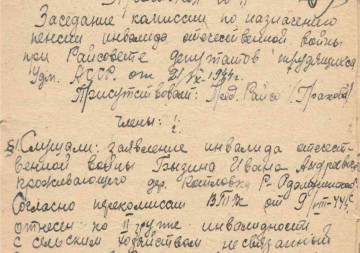 Заседание комиссии по назначению
пенсии инвалида отечественной войны
при Райсовете депутатов трудящихся
Удм. АССР от 21/IX-1944г.
Присутствовали: Пред. Райсо
Члены: 1.
2.
Слушали: заявление инвалида отечест-
венной войны Бызина Ивана Андреевича
проживающего дер. Котловка Р-
Согласно перекомиссии ВТЭК от 9/VIII-44г.
отнесен ко II групе инвалидности
с сельским хозяйством не связанный